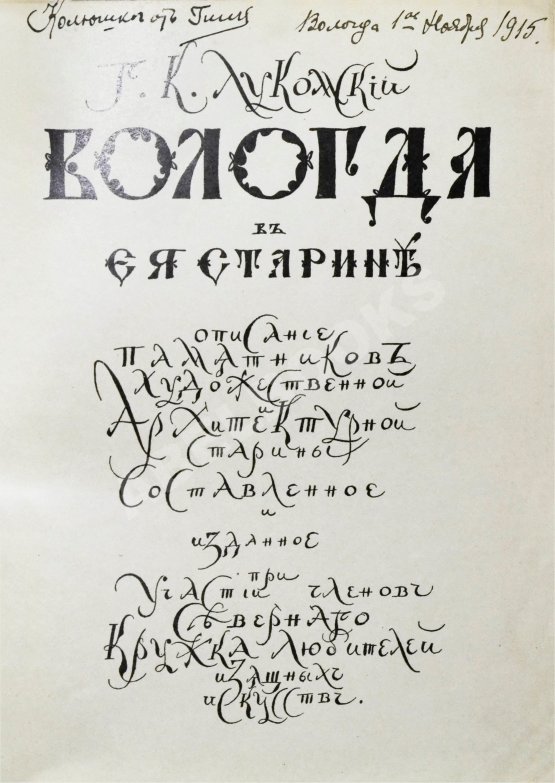 Колюшкѣ отъ
Вологда 1го Ноября 1915.
Г. К. Лукомскій
ВОЛОГДА
ВЪ
ЕЯ СТАРИНѢ
ОПИСАНІЕ
ПАМЯТНИКОВЪ
ХУДОЖЕСТВЕННОЙ
И
АРХИТЕКТУРНОЙ
СТАРИНЫ
СОСТАВЛЕННОЕ
И
ИЗДАННОЕ
ПРИ
УЧАСТІИ ЧЛЕНОВЪ
СѢВЕРНАГО
КРУЖКА ЛЮБИТЕЛЕЙ
ИЗЯЩНЫХЪ
ИСКУССТВЪ.